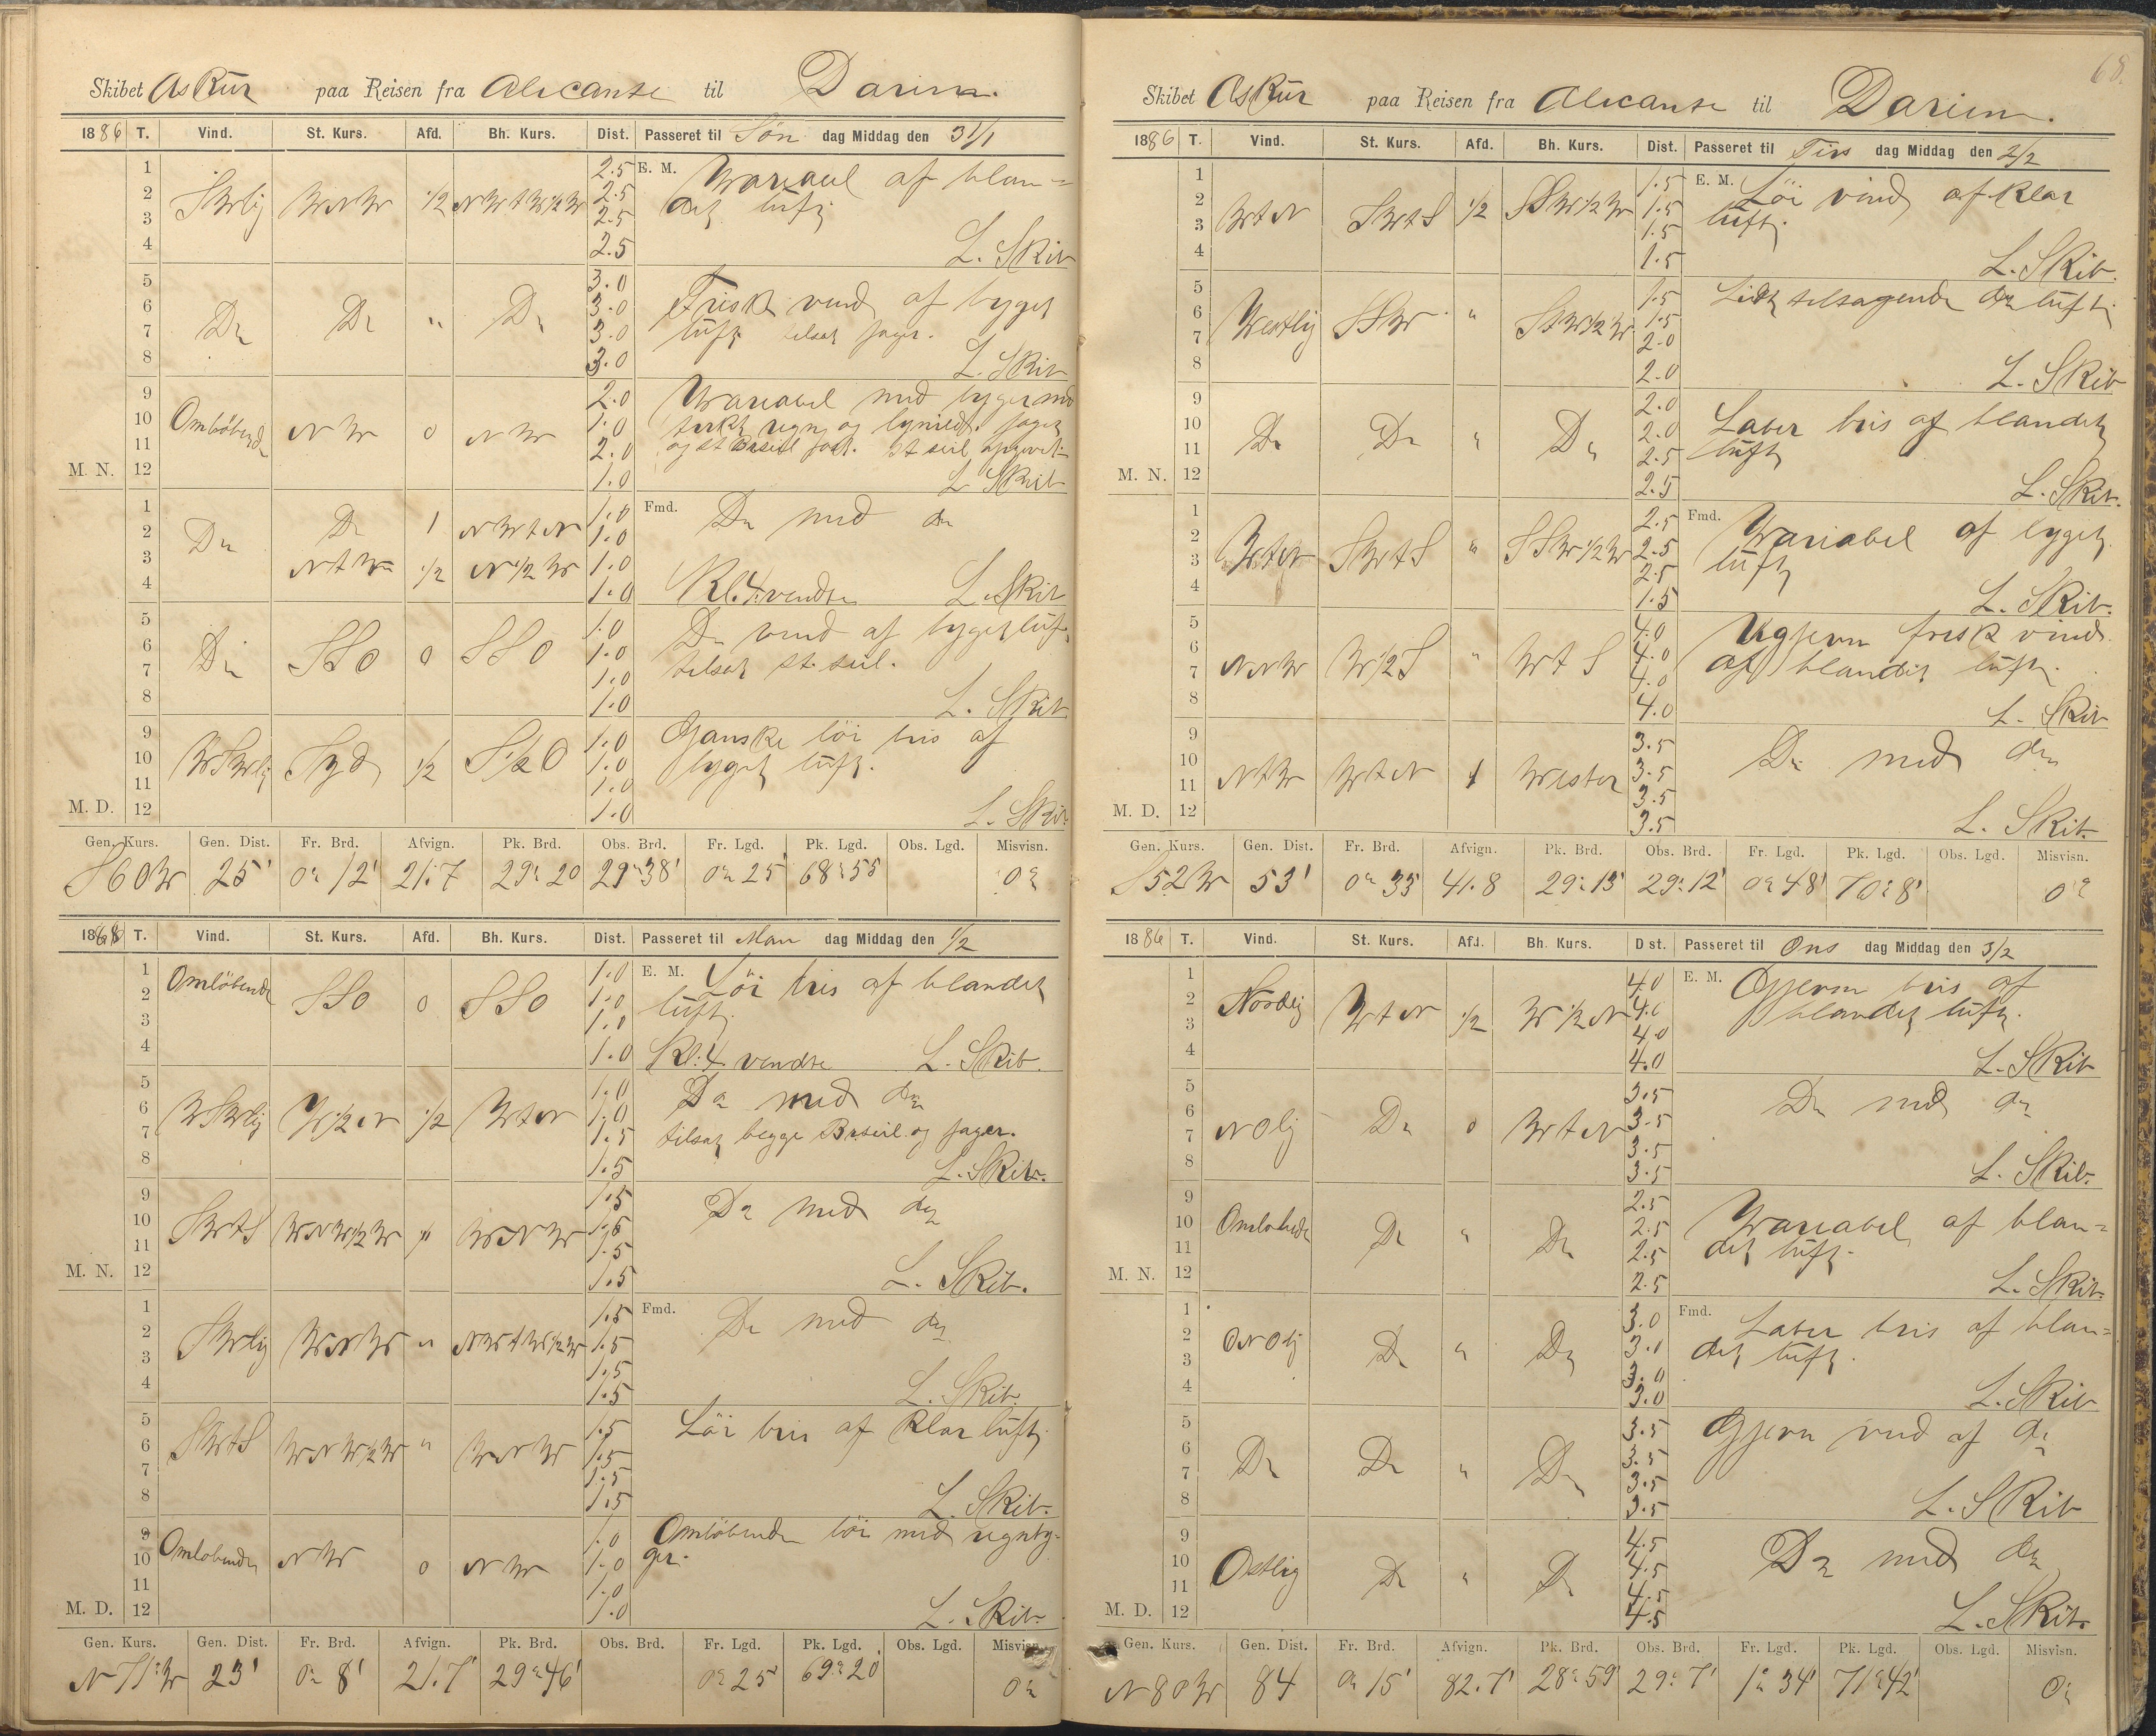 Skibet Askur paa Reisen fra Alicante til Darien.
1886 T. Vind. St. Kurs. Afd. Bh. Kurs. Dist. Passeret til Søn dag Middag den 31/1
1 2.5 E. M. Variabel af blan=
2 SWlig WNW 1/2 NWtW1/2W 2.5 det luft
3 2.5
4 2.5 L. Skib
5 3.0
6 3.0 Frisk vind af byget
7 Do Do " Do 3.0 luft tilsat jager.
8 3.0 L. Skib
9 2.0 Variabel med byger med
10 Omløbende NW 0 NW 1.0 sterkt regn og lynild. jager
11 2.0 og st Bseil fast. st seil opgivet
M. N. 12 1.0 L Skib
1 Do 1 NWtN 1.0 Fmd. Do med do
2 Do 1.0
3 NtW 1/2 N1/2W 1.0
4 1.0 Kl. 4 vendte L. Skib
5 1.0 Do vind af byget luft
6 Do SSO 0 SSO 1.0 tilsat st. seil.
7 1.0
8 1.0 L. Skib
9 1.0 Ganske løi bris af
10 WSWlig Syd 1/2 S1/2O 1.0 byget luft.
11 1.0
M. D. 12 1.0 L. Skib
Gen. Kurs. Gen. Dist. Fr. Brd. Afvign. Pk. Brd. Obs. Brd. Fr. Lgd. Pk. Lgd. Obs. Lgd. Misvisn.
S60W 25' 0° 12' 21.7 29° 20 29° 38' 0° 25' 68° 55 0°
18 T. Vind. St. Kurs. Afd. Bh. Kurs. Dist. Passeret til Man dag Middag den 1/2
1 Omløbende 1.0 E. M. Løi bris af blandet
2 SSO 0 SSO 1.0 luft.
3 1.0
4 1.0 Kl. 4 vendte L. Skib.
5 1.0 Do med do
6 WSWlig W1/2N 1/2 WtN 1.0
7 1.5 tilsat begge Brseil og jager.
8 1.5 L. Skib.
9 1.5 Do med do
10 SWtS WNW1/2W " WNW 1.5
11 1.5
M. N. 12 1.5 L. Skib.
1 1.5 Fmd. Do med do
2 SWlig WNW " NWtW1/2W 1.5
3 1.5
4 1.5 L. Skib.
5 1.5 Løi bris af klar luft
6 SWtS WNW1/2W " WNW 1.5
7 1.5
8 1.5 L. Skib.
9 1.0 Omløbende løi med regnby=
10 Omløbende NW 0 NW 1.0 ger.
11 1.0
M. D. 12 1.0 L. Skib.
Gen. Kurs. Gen. Dist. Fr. Brd. Afvign. Pk. Brd. Obs. Brd. Fr. Lgd. Pk. Lgd. Obs. Lgd. Misvisn.
N71°W 23' 0° 8' 21.7' 29° 46' 0° 25' 69° 20' 0°
68.
Skibet Askur paa Reisen fra Alicante til Darien.
1886 T. Vind. St. Kurs. Afd. Bh. Kurs. Dist. Passeret til Tirs dag Middag den 2/2
1 1.5 E. M. Løi vind af klar
2 WtN SWtS 1/2 SSW1/2W 1.5 luft.
3 1.5
4 1.5 L. Skib.
5 1.5 Lidt tiltagende do luft
6 Westlig SSW " StW1/2W 1.5
7 2.0
8 2.0 L. Skib
9 2.0 Laber bris af blandet
10 Do Do " Do 2.0 luft
11 2.5
M. N. 12 2.5 L. Skib.
1 2.5 Fmd. Variabel af byget
2 WtN SWtS " SSW1/2W 2.5 luft
3 2.5
4 1.5 L. Skib.
5 4.0 Ugjevn frisk vind
6 NNW W1/2S " WtS 4.0 af blandet luft.
7 4.0
8 4.0 L. Skib
9 3.5 Do med do
10 NtW WtN 1 Wester 3.5
11 3.5
M. D. 12 3.5 L. Skib.
Gen. Kurs. Gen. Dist. Fr. Brd. Afvign. Pk. Brd. Obs. Brd. Fr. Lgd. Pk. Lgd. Obs. Lgd. Misvisn.
S52W 53' 0° 33' 41.8 29° 13' 29° 12' 0° 48' 70° 8' 0°
1886 T. Vind. St. Kurs. Afd. Bh. Kurs. Dist. Passeret til Ons dag Middag den 3/2
1 4.0 E. M. Gjevn bris af
2 Nordlig WtN 1/2 W1/2N 4.0 blandet luft.
3 4.0
4 4.0 L. Skib
5 3.5 Do med do
6 NOlig Do 0 WtN 3.5
7 3.5
8 3.5 L. Skib.
9 2.5 Variabel af blan=
10 Omløbende Do " Do 2.5 det luft.
11 2.5
M. N. 12 2.5 L. Skib.
1 3.0 Fmd. Laber bris af blan=
2 ONOlig Do " Do 3.0 det luft.
3 3.0
4 3.0 L. Skib
5 3.5 Gjevn vind af do
6 Do Do " Do 3.5
7 3.5
8 3.5 L. Skib
9 4.5 Do med do
10 Ostlig Do " Do 4.5
11 4.5
M. D. 12 4.5 L. Skib.
Gen. Kurs. Gen. Dist. Fr. Brd. Afvign. Pk. Brd. Obs. Brd. Fr. Lgd. Pk. Lgd. Obs. Lgd. Misvisn.
N80W 84 0° 15' 82.7' 28° 59' 29° 7' 1° 34' 71° 42' 0°